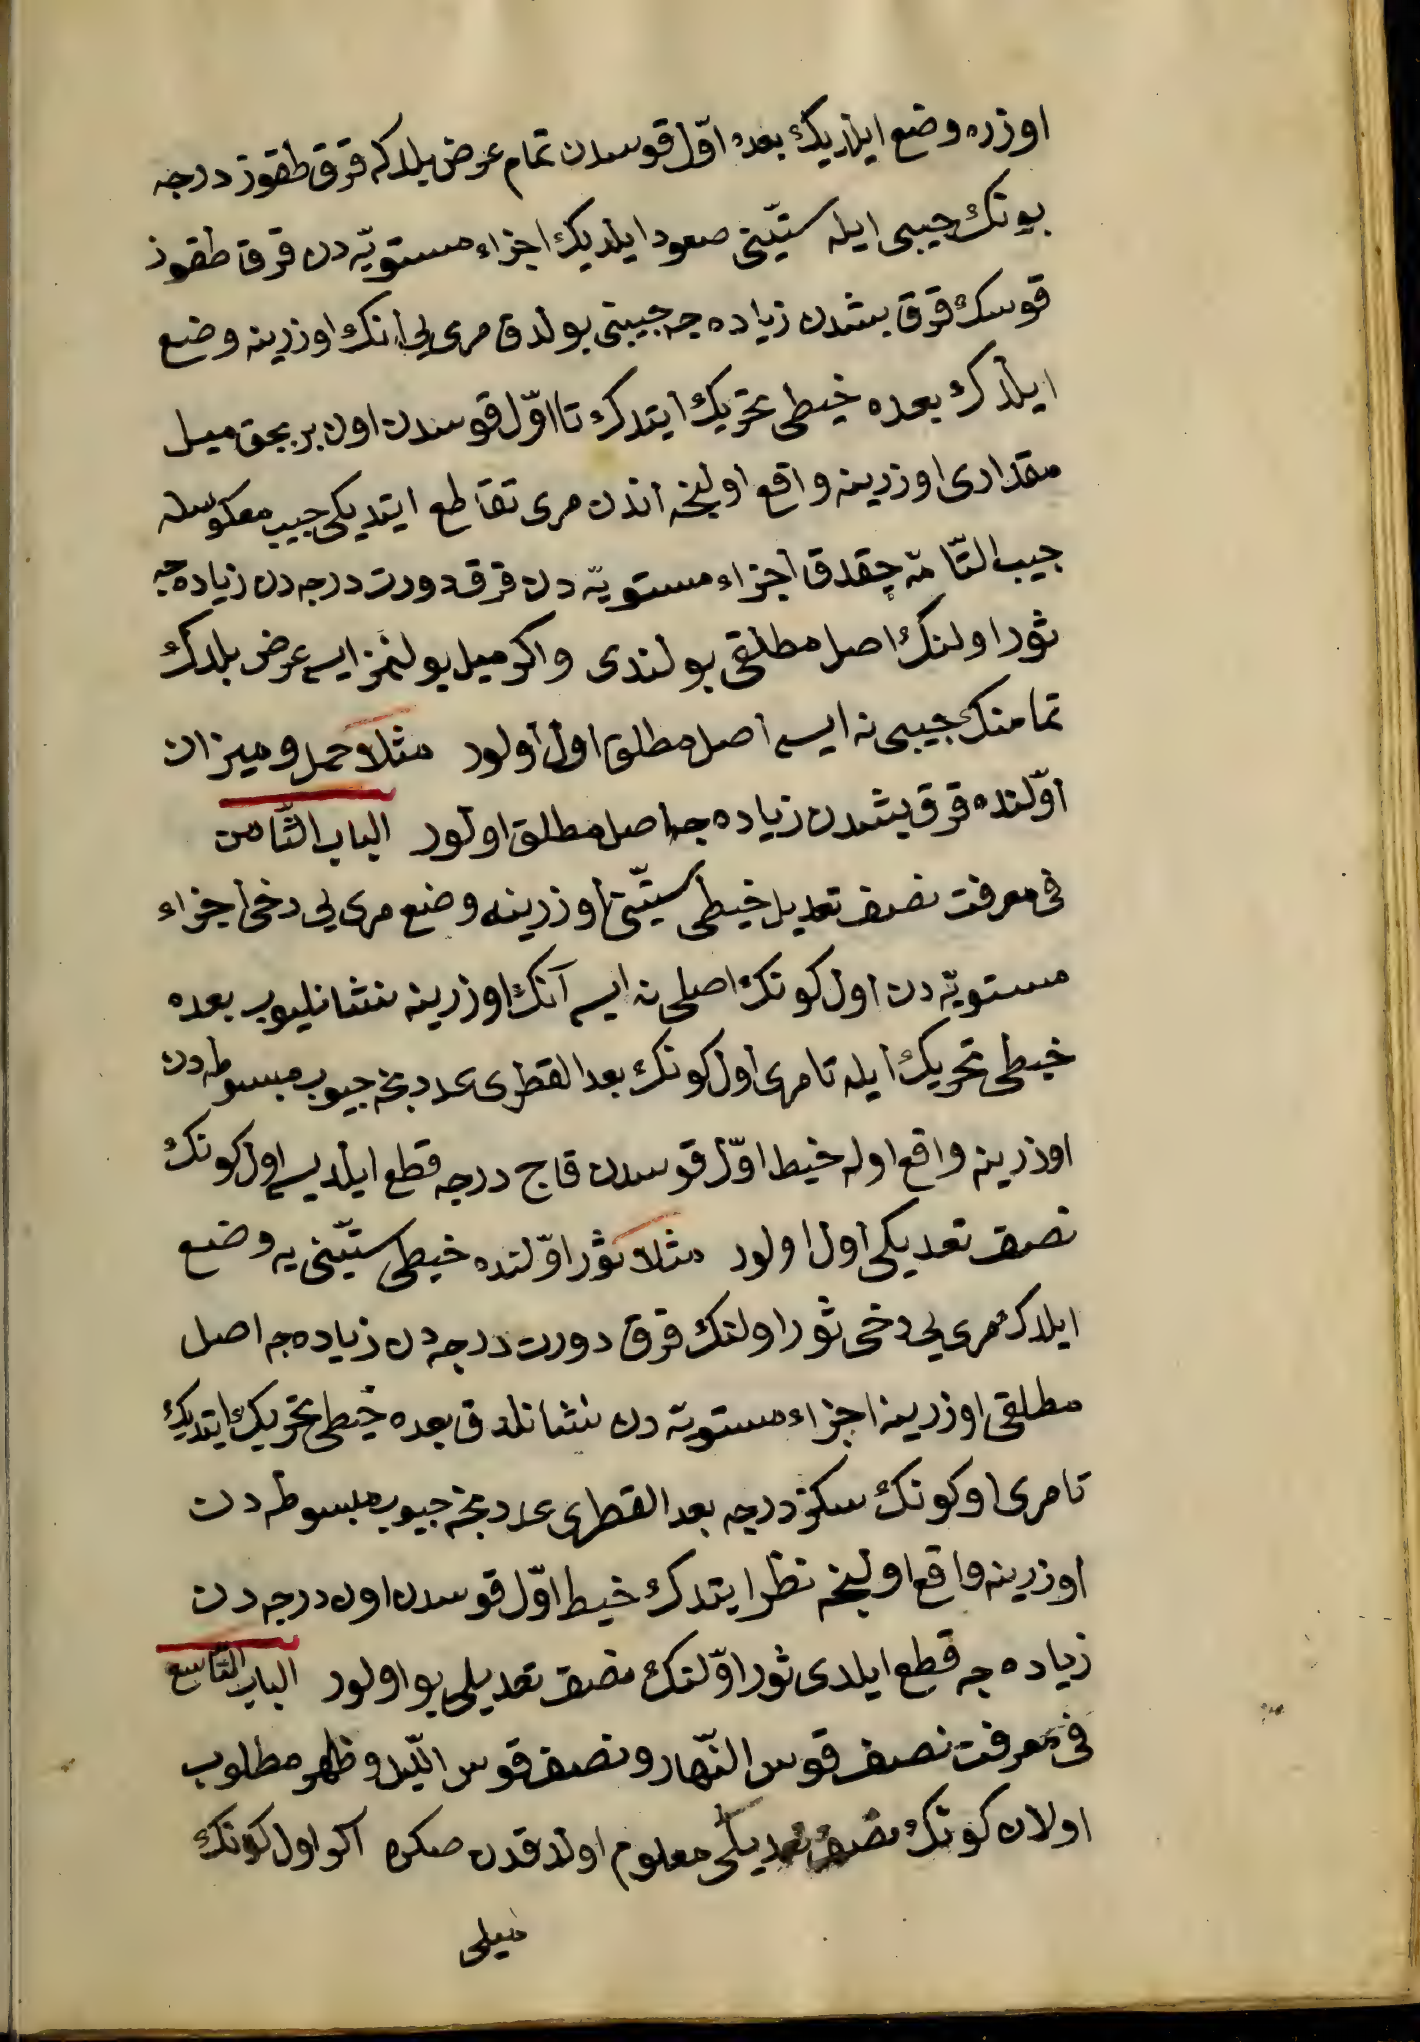 اوزره وضع ايلديك بعده اوّل قوسدن تمام عرض بلدكه قرق طقوز درجه
بونك جيبى ايله ستّينى صعود ايلديك اجزاء مستويّه دن قرقا طقوز
قوسك قرق بشدن زياده جه جيبنى بولدق مرى يى انك اوزرينه وضع
ايلدك بعده خيطى تحريك ايتدك تا اوّل قوسدن اون بر بچق ميل
مقدارى اوزرينه واقع اولنجه اندن مرى تقاطع ايتديكى جيب معكوسله
جيب التّامّه چقدق اجزاء مستويّه دن قرق دورت درجه دن زياده جه
ثور اولنك اصل مطلقى بولندى واكر ميل بولنمز ايسه عرض بلدك
تمامنك جيبى نه ايسه اصل مطلق اول اولور مثلا حمل و ميزان
اوّلنده قرق بشدن زياده جه اصل مطلق اولور الباب الثّامن
فى معرفت نصف تعديل خيطى ستّينى اوزرينه وضع مرى يى دخى اجزاء
مستويّه دن اول كونك اصلى نه ايسه آنك اوزرينه نشانليوب بعده
خيطى تحريك ايله تا مرى اول كونك بعد القطرى عددنجه جيوب مبسوطه دن
اوزرينه واقع اوله خيط اوّل قوسدن قاچ درجه قطع ايلديسه اول كونك
نصف تعديلى اول اولور مثلا ثور اوّلنده خيطى ستّينى يه وضع
ايلدك مرى يى دخى ثور اولنك قرق دورت درجه دن زياده جه اصل
مطلقى اوزرينه اجزاء مستويّه دن نشانلدق بعده خيطى تحريك ايتديك
تا مرى او كونك سكز درجه بعد القطرى عددنجه جيوب مبسوطه دن
اوزرينه واقع اولنجه نظر ايتدك خيط اوّل قوسدن اون درجه دن
زياده جه قطع ايلدى ثور اوّلنك نصف تعديلى بو اولور الباب التّاسع
فى معرفت نصف قوس النّهار و نصف قوس اللّيل و ظهر مطلوب
اولان كونك نصف تعديلى معلوم اولدقدن صكره اكر اول كونك
ميلى